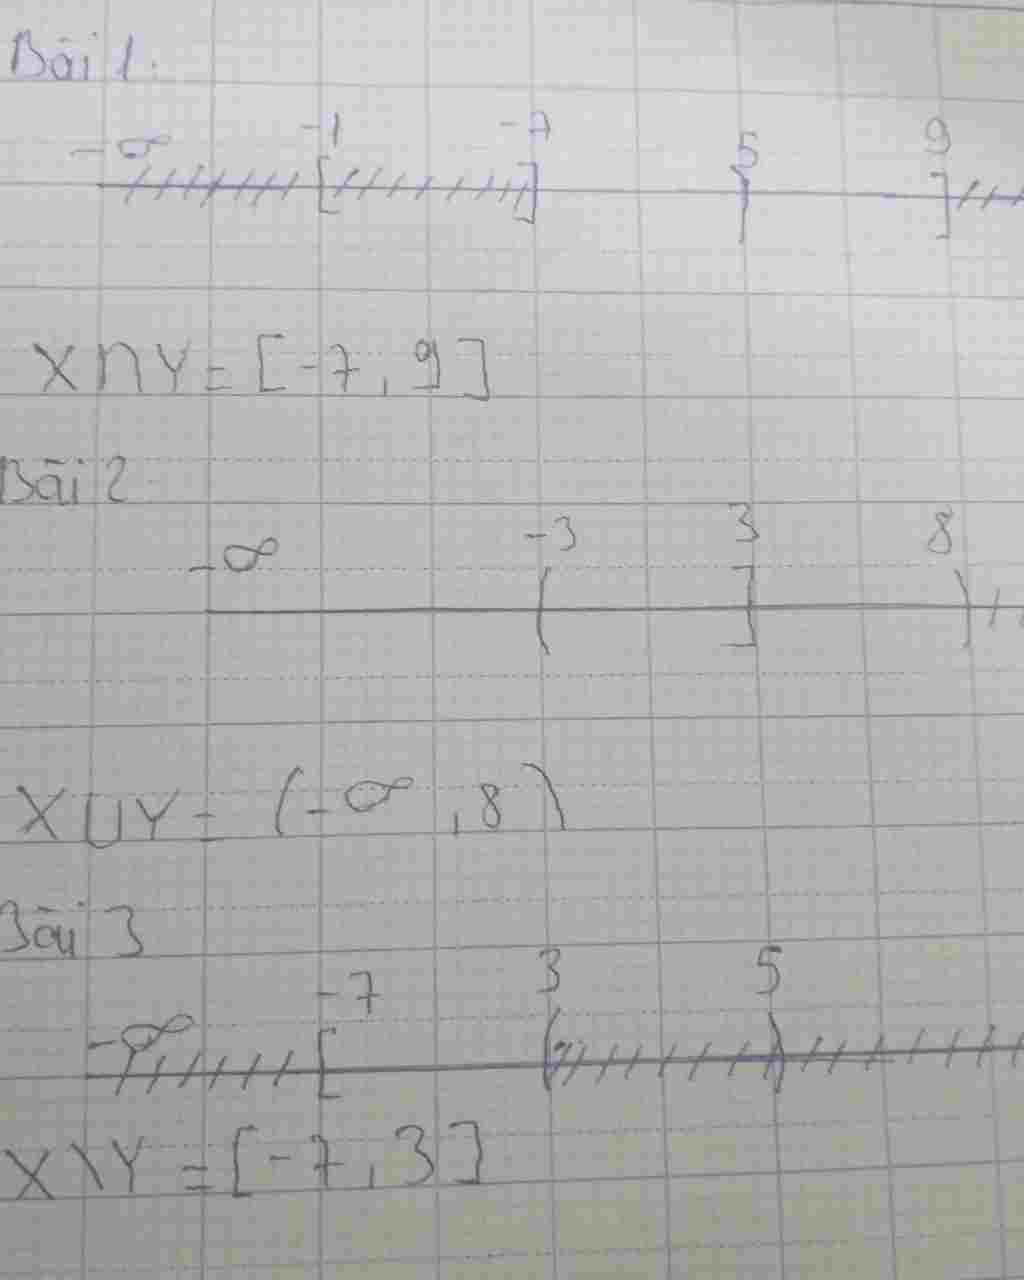 Bài 1.
-∞ -1 -7 5 9
[ ] ) ]
X∩Y = [-7, 9]
Bài 2
-∞ -3 3 8
( ] )
X∪Y = (-∞, 8)
Bài 3
-∞ -7 3 5
[ ( )
X\Y = [-7, 3]